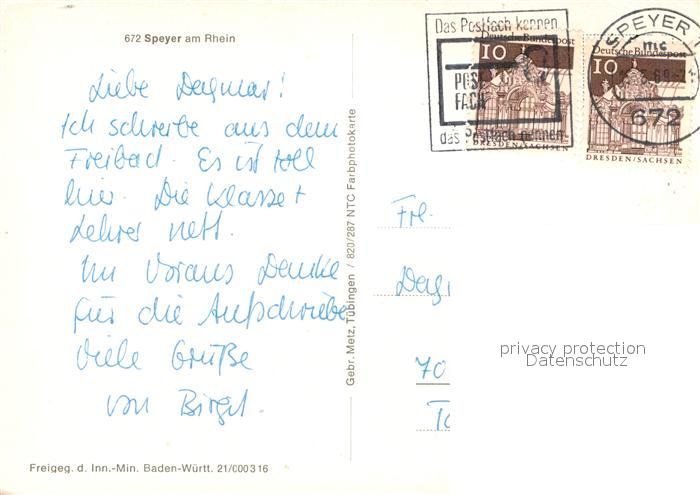 672 Speyer am Rhein
Liebe Dagmar!
Ich schreibe aus dem
Freibad. Es ist toll
hier. Die Klasse +
Lehrer nett.
Im Voraus Danke
für die Aufschriebe
Viele Grüße
von Birgit.
Freigeg. d. Inn.-Min. Baden-Württ. 21/000316
Gebr. Metz, Tübingen / 820/287 NTC Farbphotokarte
Das Postfach kennen
POST
FACH
das Postfach nennen
10 Deutsche Bundespost
DRESDEN/SACHSEN
10 Deutsche Bundespost
DRESDEN/SACHSEN
SPEYER
mc
672
Frl.
Dag
70
privacy protection
Datenschutz